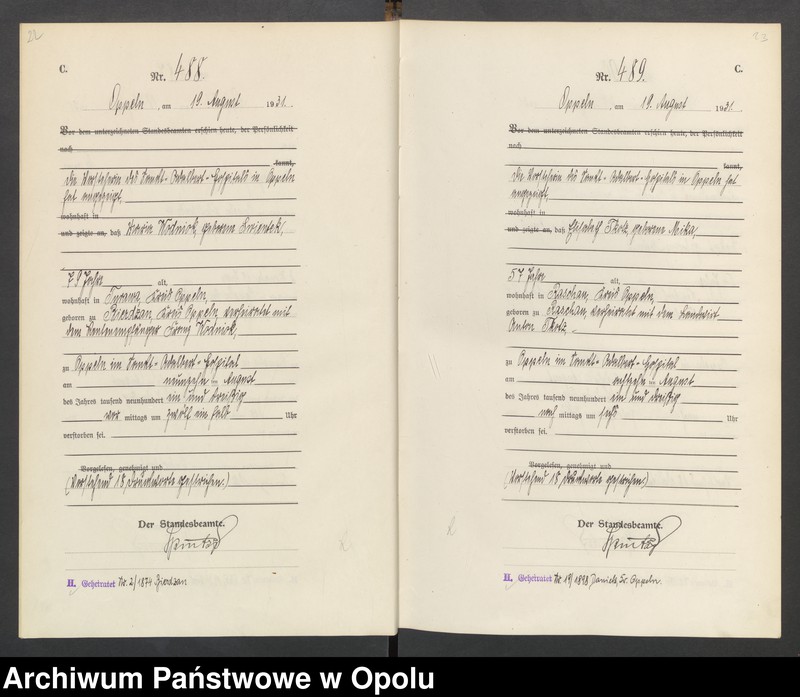 22
C.
Nr. 488.
Oppeln, am 19. August 1931.
Vor dem unterzeichneten Standesbeamten erschien heute, der Persönlichkeit
nach
kannt,
die Vorsteherin des Sankt-Adalbert-Hospitals in Oppeln
hat angezeigt,
wohnhaft in
und zeigte an, daß Maria Wodnick, geborene Swientek,
79 Jahre alt,
wohnhaft in Turawa, Kreis Oppeln,
geboren zu Bierdzan, Kreis Oppeln, verheiratet mit
dem Rentenempfänger Franz Wodnick,
zu Oppeln im Sankt-Adalbert-Hospital
am neunzehn ten August
des Jahres tausend neunhundert ein und dreißig
vor mittags um zwölf ein halb Uhr
verstorben sei.
Vorgelesen, genehmigt und
(Vorstehend 18 Druckworte gestrichen.)
Der Standesbeamte.
H. Geheiratet Nr. 2/1874 Bierdzan
23
C.
Nr. 489.
Oppeln, am 19. August 1931.
Vor dem unterzeichneten Standesbeamten erschien heute, der Persönlichkeit
nach
kannt,
die Vorsteherin des Sankt-Adalbert-Hospitals in Oppeln hat
angezeigt,
wohnhaft in
und zeigte an, daß Elisabeth geborene Mika,
57 Jahre alt,
wohnhaft in Raschau, Kreis Oppeln,
geboren zu Raschau, verheiratet mit dem Landwirt
Anton
zu Oppeln im Sankt-Adalbert-Hospital
am achtzehn ten August
des Jahres tausend neunhundert ein und dreißig
nach mittags um sechs Uhr
verstorben sei.
Vorgelesen, genehmigt und
(Vorstehend 18 Druckworte gestrichen.)
Der Standesbeamte.
H. Geheiratet Nr. 19/1898 Oppeln.
Archiwum Państwowe w Opolu